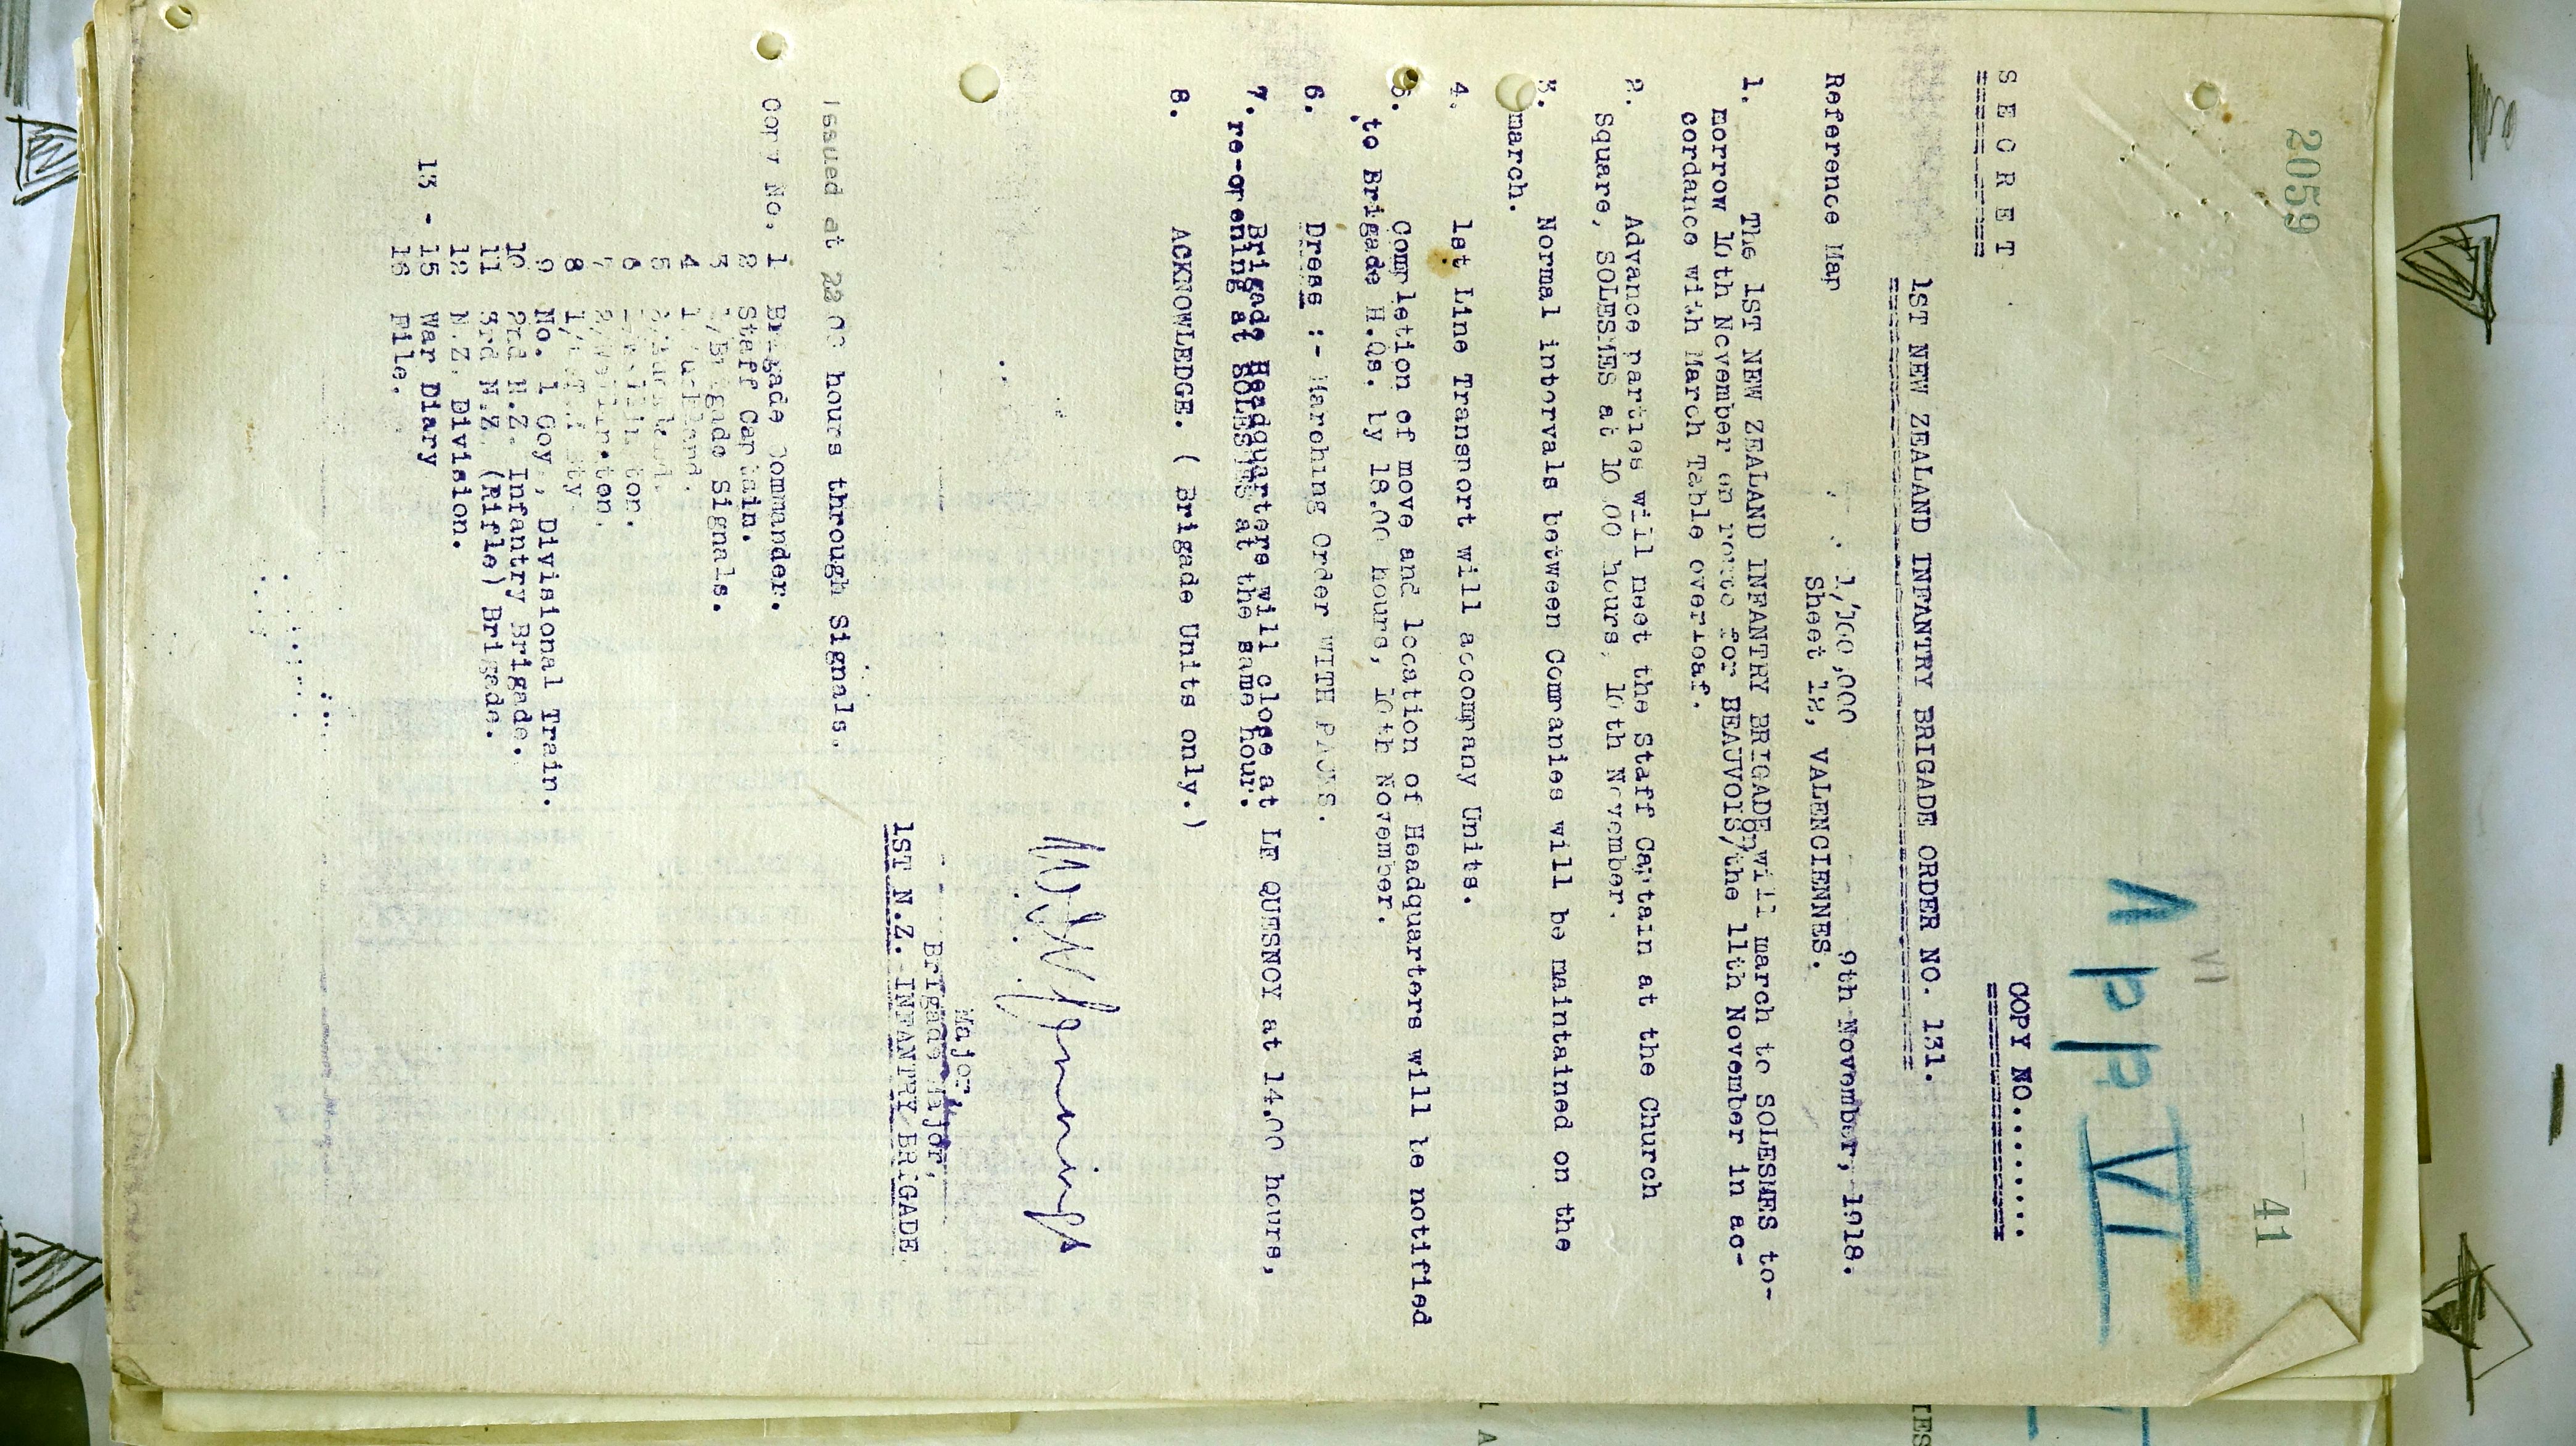 2059
41
VI
App VI
SECRET
COPY NO.........
1ST NEW ZEALAND INFANTRY BRIGADE ORDER NO. 131.
9th November, 1918.
Reference Map 1/100,000
Sheet 12, VALENCIENNES.
1. The 1ST NEW ZEALAND INFANTRY BRIGADE will march to SOLESMES to-
morrow 10th November en route for BEAUVOIS/on the 11th November in ac-
cordance with March Table overleaf.
2. Advance parties will meet the Staff Captain at the Church
Square, SOLESMES at 10.00 hours, 10th November.
3. Normal intervals between Companies will be maintained on the
march.
4. 1st Line Transport will accompany Units.
5. Completion of move and location of Headquarters will be notified
to Brigade H.Qs. by 18.00 hours, 10th November.
6. Dress :- Marching Order WITH PACKS.
7. Brigade Headquarters will close at LE QUESNOY at 14.00 hours,
re-opening at SOLESMES at the same hour.
8. ACKNOWLEDGE. ( Brigade Units only.)
Major,
Brigade Major,
1ST N.Z. INFANTRY BRIGADE
Issued at 2200 hours through Signals.
Copy No. 1 Brigade Commander.
2 Staff Captain.
3 1/Brigade Signals.
4 1/Auckland.
5 2/Auckland.
6 1/Wellington.
7 2/Wellington.
8
9 No. 1 Coy, Divisional Train.
10 2nd N.Z. Infantry Brigade.
11 3rd N.Z. (Rifle) Brigade.
12 N.Z. Division.
13 - 15 War Diary
16 File.